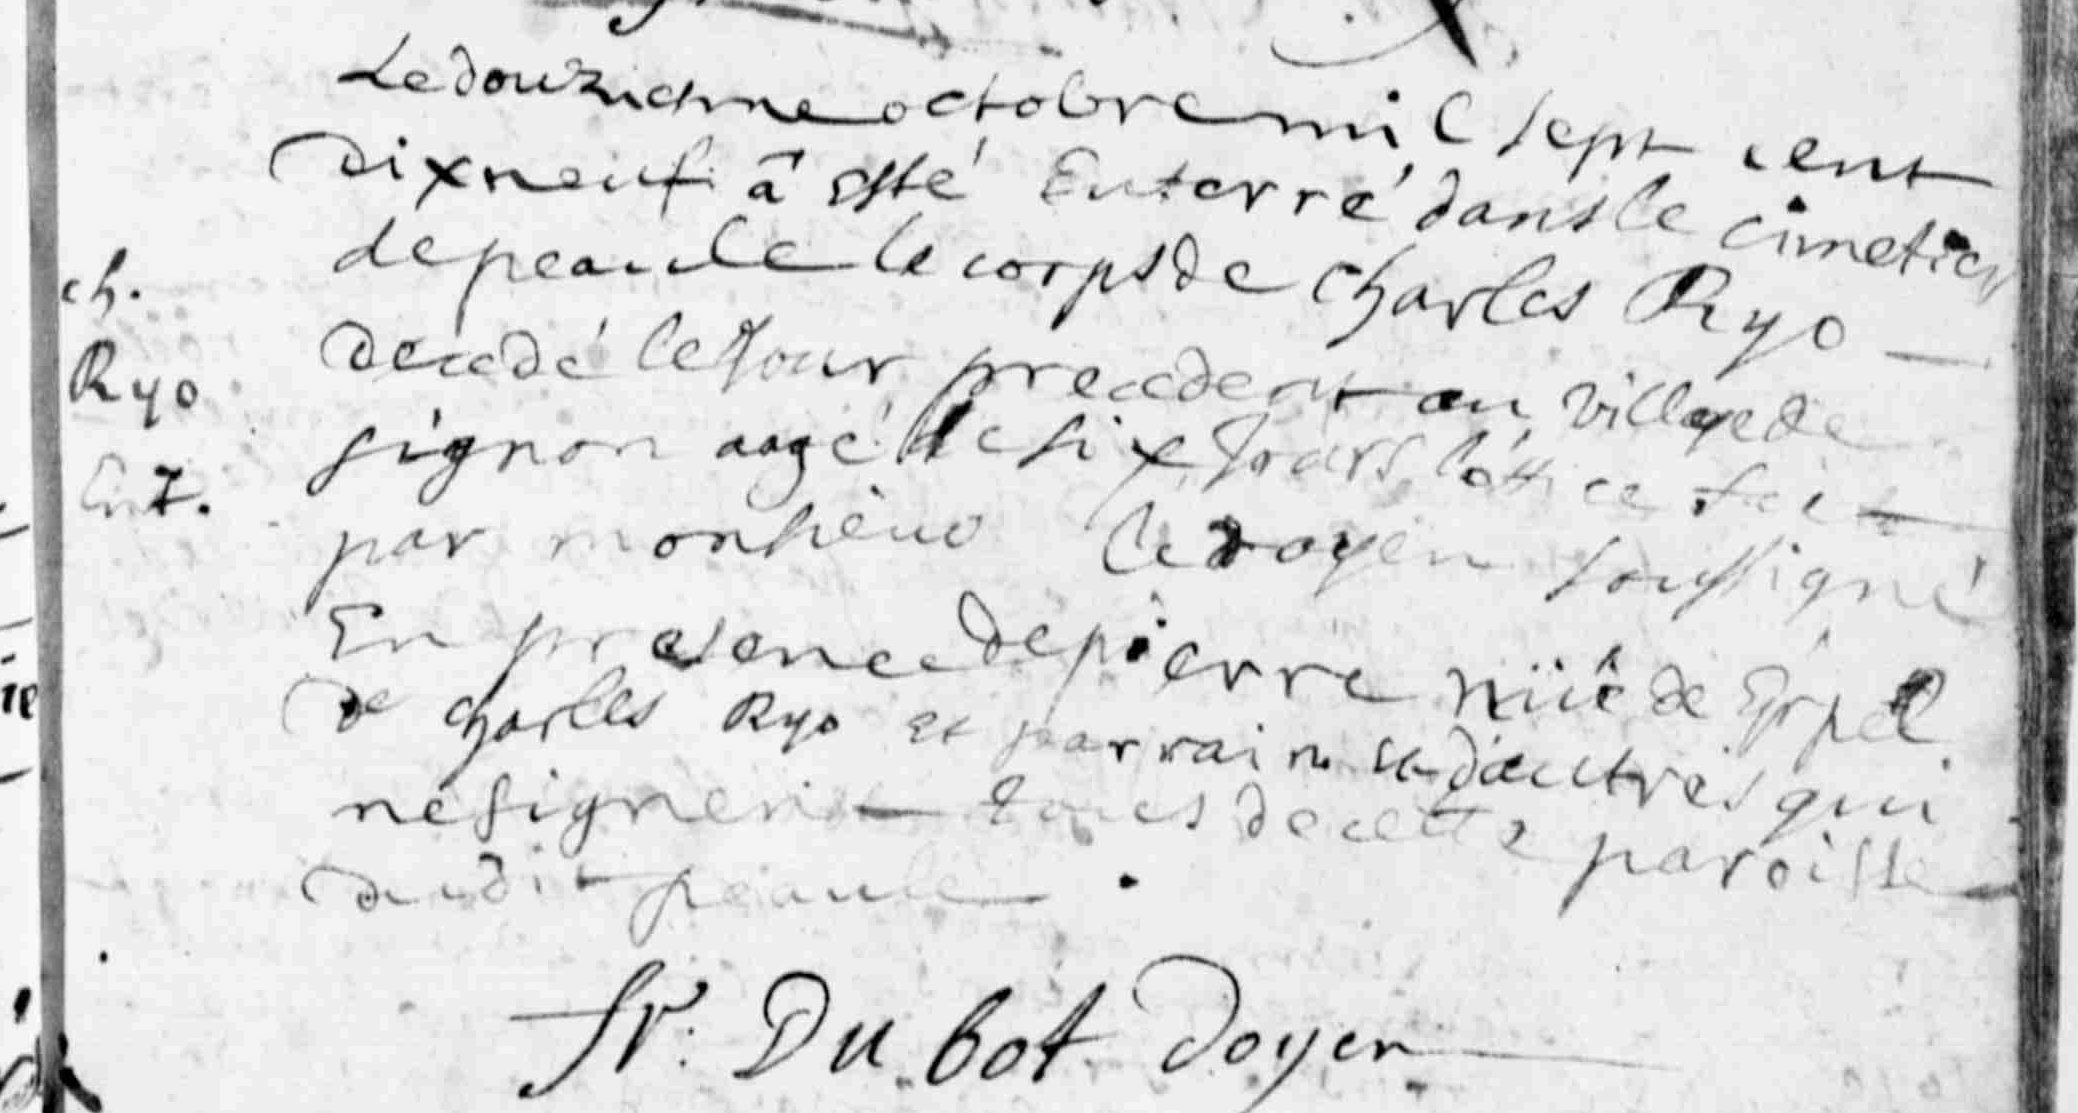 Le douzuieme octobre mil sept cent
dixneuf â esté Enterré dans le cimetier
de peaule le corps de Charles Ryo
ch.
Ryo
Ent.
decedé le Jour precedent au village de
signon aagé de six Jours l'office fait
par monsieur le doyen soussigné
En presence de pierre de
de Charles Ryo et parrain et d'autres qui
ne signent tous de cette paroisse
dudit peaule .
fr. Du bot Doyen